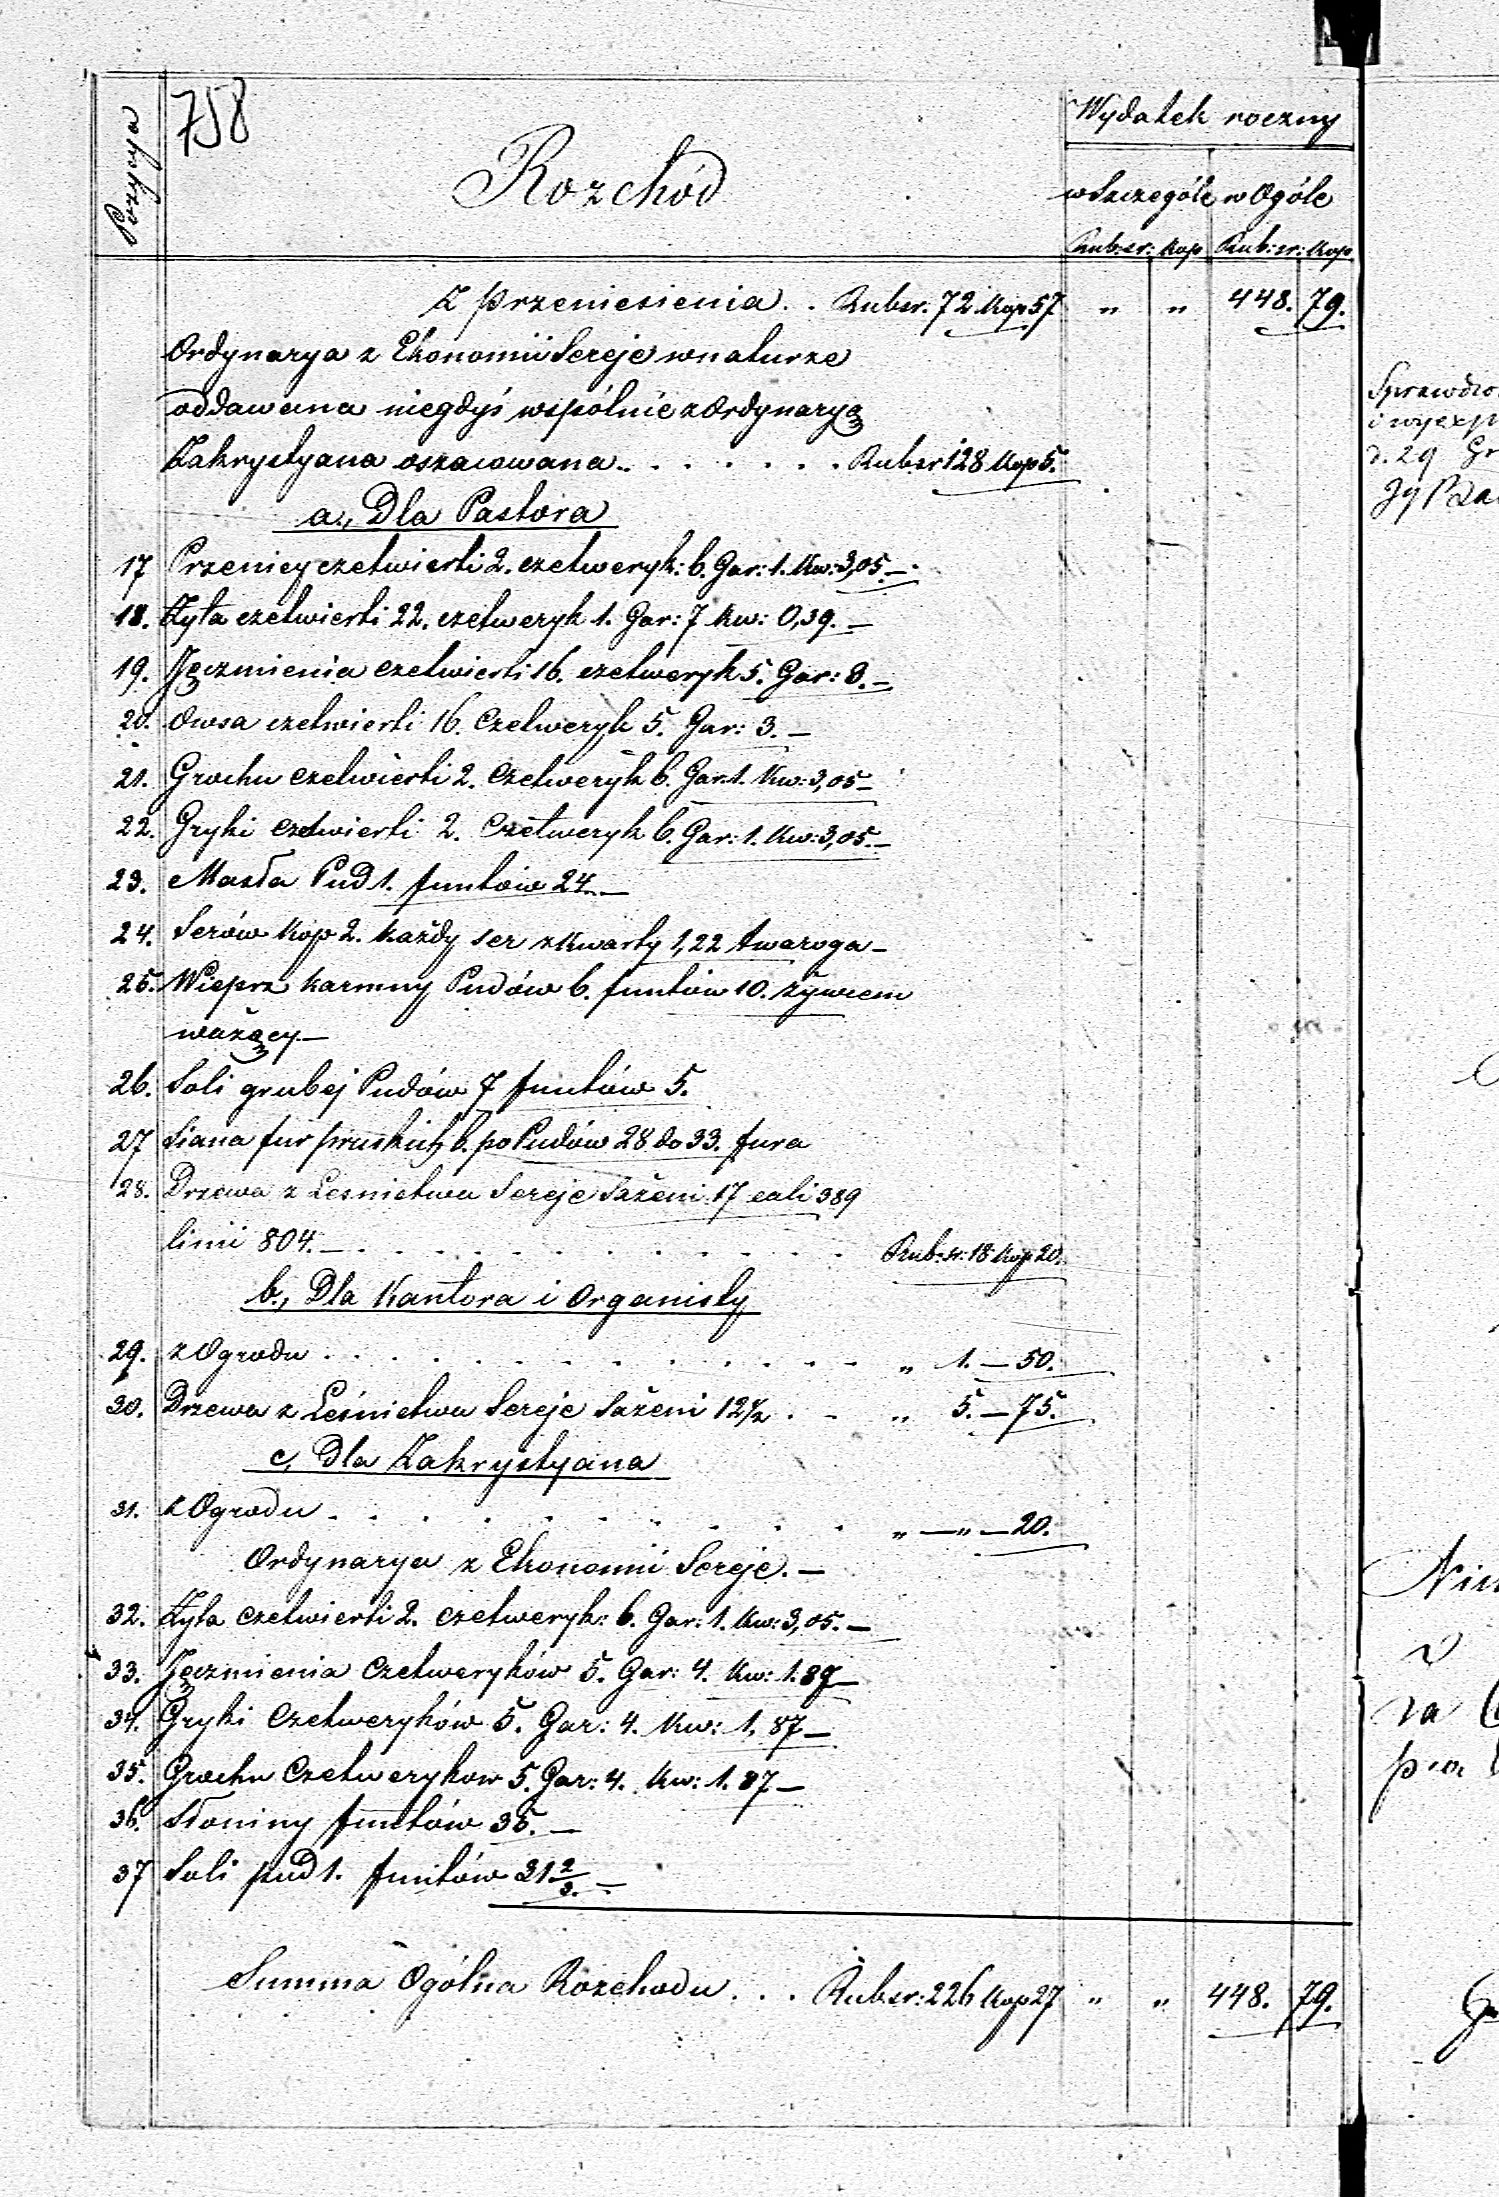 758
Pozycya
Rozchód
Wydatek roczny
w Szczególe w Ogóle
Rub: sr: Kop Rub: sr: Kop
Z przeniesienia . . Rub sr. 72 Kop 57 " " 448. 79.
Ordynarya z Ekonomii Sereje w naturze
oddawana niegdyś wspólnie z Ordynaryą
Zakrystyana oszacowana . . . . . . . Rub sr 128 Kop 5.
a., Dla Pastora
17 Przenicy czetwierti 2. czetweryk: 6. Gar: 1. Kw: 3,05.—
18. Żyta czetwierti 22. czetweryk 1. Gar: 7 Kw: 0,39.—
19. Jęczmienia czetwierti 16. czetweryk 5. Gar: 3.—
20. Owsa czetwierti 16. Czetweryk 5. Gar: 3.—
21. Grochu czetwierti 2. Czetweryk 6. Gar. 1. Kw: 3,05—
22. Gryki czetwierti 2. Czetweryk 6. Gar: 1. Kw: 3,05.—
23. Masła Pud 1. funtów 24.—
24. Serów Kop 2. każdy ser z kwarty 1,22 twaroga—
25. Wieprz karmny Pudów 6. funtów 10. żywcem
ważący.—
26. Soli grubej Pudów 7 funtów 5.
27 Siana fur pruskich 6. po Pudów 28 do 33. fura
28. Drzewa z Lesnictwa Sereje Sażeni 17 cali 389
linii 804.— . . . . . . . . . . . Rub: sr: 18 Kop 20.
b., Dla Kantora i Organisty
29. z Ogrodu . . . . . . . . . . . . . " 1. — 50.
30. Drzewa z Leśnictwa Sereje Sażeni 12 1/2 . . " 5. — 75.
c, Dla Zakrystyana
31. z Ogrodu . . . . . . . . . . " — " — 20.
Ordynarya z Ekonomii Sereje.—
32. Żyta czetwierti 2. czetweryk: 6. Gar: 1. Kw: 3,05.—
33. Jęczmienia Czetweryków 5. Gar: 4. Kw: 1.87—
34. Gryki Czetweryków 5. Gar: 4. Kw: 1,87—
35. Grochu Czetwerykow 5. Gar: 4. Kw: 1.87—
36. Słoniny funtów 35.—
37 Soli pud 1. funtów 31 2/3.—
Summa Ogólna Rozchodu . . . Rub sr: 226 Kop 27 " " 448. 79.